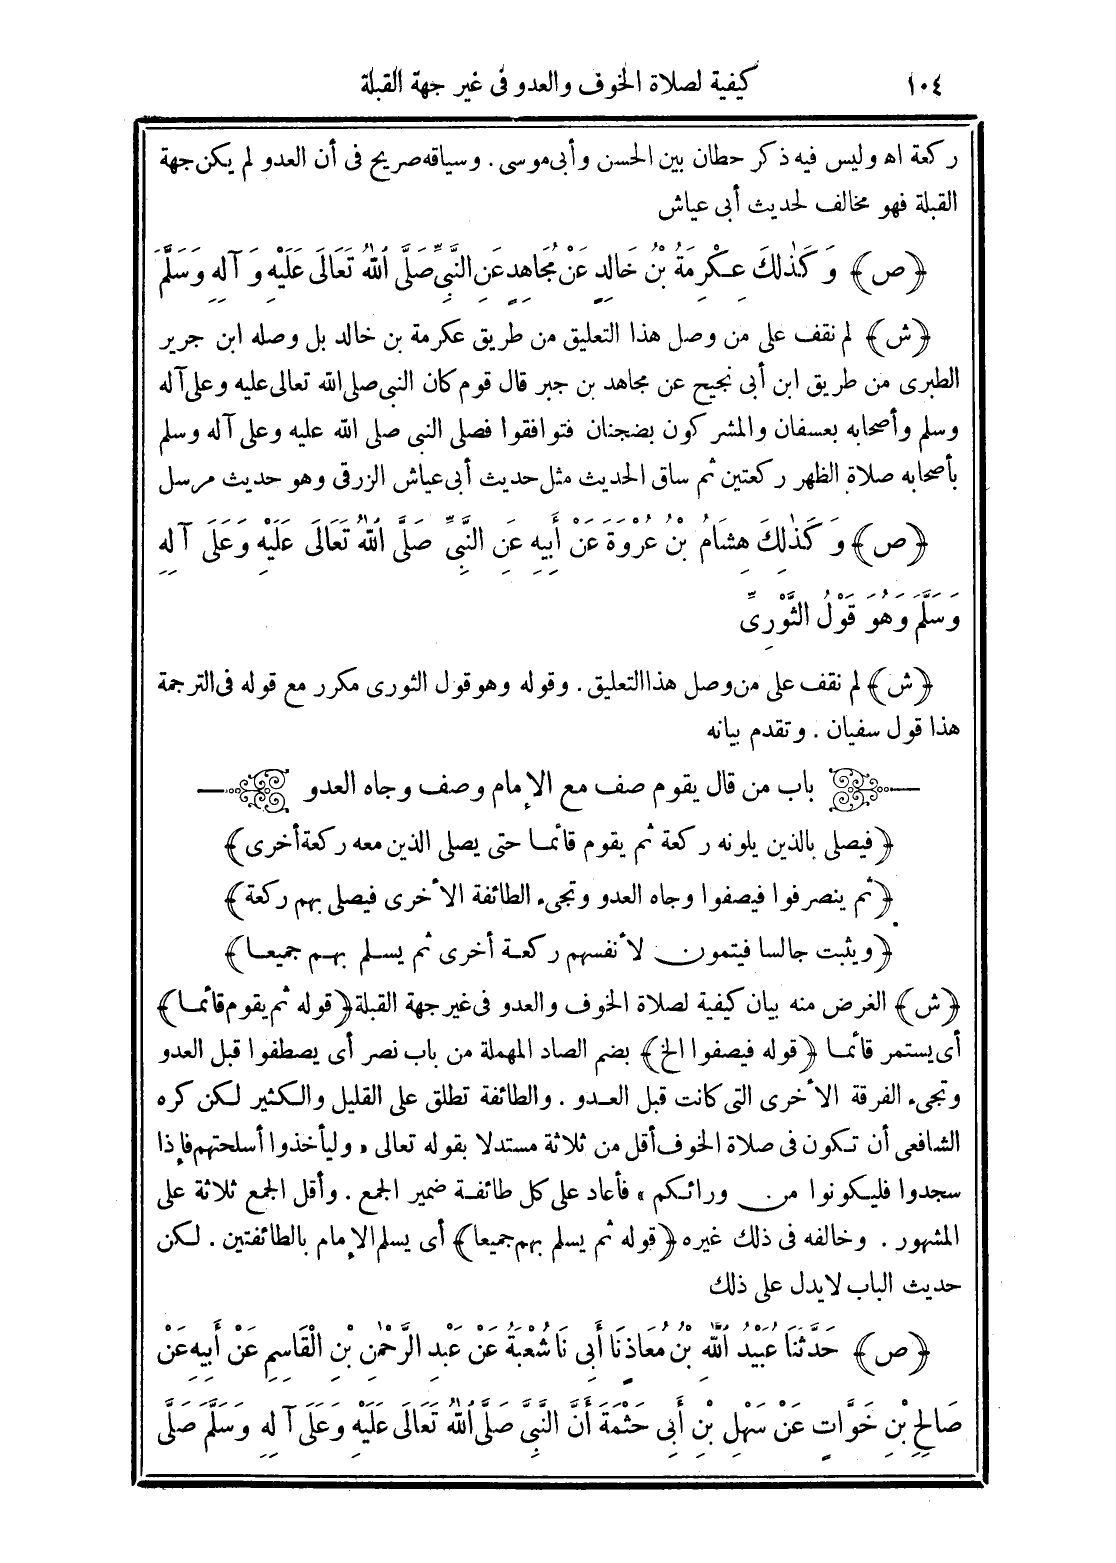 ١٠٤ كيفية لصلاة الخوف والعدو فى غير جهة القبلة
ركعة اه وليس فيه ذكر حطان بين الحسن وأبى موسى . وسياقه صريح فى أن العدو لم يكن جهة
القبلة فهو مخالف لحديث أبى عياش
﴿ص﴾ وَكَذٰلِكَ عِكْرِمَةُ بْنُ خَالِدٍ عَنْ مُجَاهِدٍ عَنِ النَّبِىِّ صَلَّى اللهُ تَعَالَى عَلَيْهِ وَآلِهِ وَسَلَّمَ
﴿ش﴾ لم نقف على من وصل هذا التعليق من طريق عكرمة بن خالد بل وصله ابن جرير
الطبرى من طريق ابن أبى نجيح عن مجاهد بن جبر قال قوم كان النبى صلى الله تعالى عليه وعلى آله
وسلم وأصحابه بعسفان والمشركون بضجنان فتوافقوا فصلى النبى صلى الله عليه وعلى آله وسلم
بأصحابه صلاة الظهر ركعتين ثم ساق الحديث مثل حديث أبى عياش الزرقى وهو حديث مرسل
﴿ص﴾ وَكَذٰلِكَ هِشَامُ بْنُ عُرْوَةَ عَنْ أَبِيهِ عَنِ النَّبِىِّ صَلَّى اللهُ تَعَالَى عَلَيْهِ وَعَلَى آلِهِ
وَسَلَّمَ وَهُوَ قَوْلُ الثَّوْرِىِّ
﴿ش﴾ لم نقف على من وصل هذا التعليق . وقوله وهو قول الثورى مكرر مع قوله فى الترجمة
هذا قول سفيان . وتقدم بيانه
باب من قال يقوم صف مع الإمام وصف وجاه العدو
﴿فيصلى بالذين يلونه ركعة ثم يقوم قائما حتى يصلى الذين معه ركعة أخرى﴾
﴿ثم ينصرفوا فيصفوا وجاه العدو وتجىء الطائفة الأخرى فيصلى بهم ركعة﴾
﴿ويثبت جالسا فيتمون لأنفسهم ركعة أخرى ثم يسلم بهم جميعا﴾
﴿ش﴾ الغرض منه بيان كيفية لصلاة الخوف والعدو فى غير جهة القبلة ﴿قوله ثم يقوم قائما﴾
أى يستمر قائما ﴿قوله فيصفوا الخ﴾ بضم الصاد المهملة من باب نصر أى يصطفوا قبل العدو
وتجىء الفرقة الأخرى التى كانت قبل العدو . والطائفة تطلق على القليل والكثير لكن كره
الشافعى أن تكون فى صلاة الخوف أقل من ثلاثة مستدلا بقوله تعالى « وليأخذوا أسلحتهم فإذا
سجدوا فليكونوا من ورائكم » فأعاد على كل طائفة ضمير الجمع . وأقل الجمع ثلاثة على
المشهور . وخالفه فى ذلك غيره ﴿قوله ثم يسلم بهم جميعا﴾ أى يسلم الإمام بالطائفتين . لكن
حديث الباب لا يدل على ذلك
﴿ص﴾ حَدَّثَنَا عُبَيْدُ اللهِ بْنُ مُعَاذٍ نَا أَبِى نَا شُعْبَةُ عَنْ عَبْدِ الرَّحْمٰنِ بْنِ الْقَاسِمِ عَنْ أَبِيهِ عَنْ
صَالِحِ بْنِ خَوَّاتٍ عَنْ سَهْلِ بْنِ أَبِى حَثْمَةَ أَنَّ النَّبِىَّ صَلَّى اللهُ تَعَالَى عَلَيْهِ وَعَلَى آلِهِ وَسَلَّمَ صَلَّى